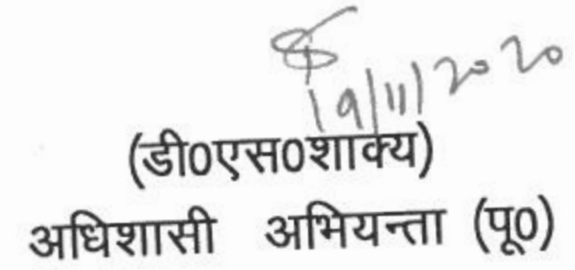 19/11/2020
(डी0एस0शाक्य)
अधिशासी अभियन्ता (पू0)